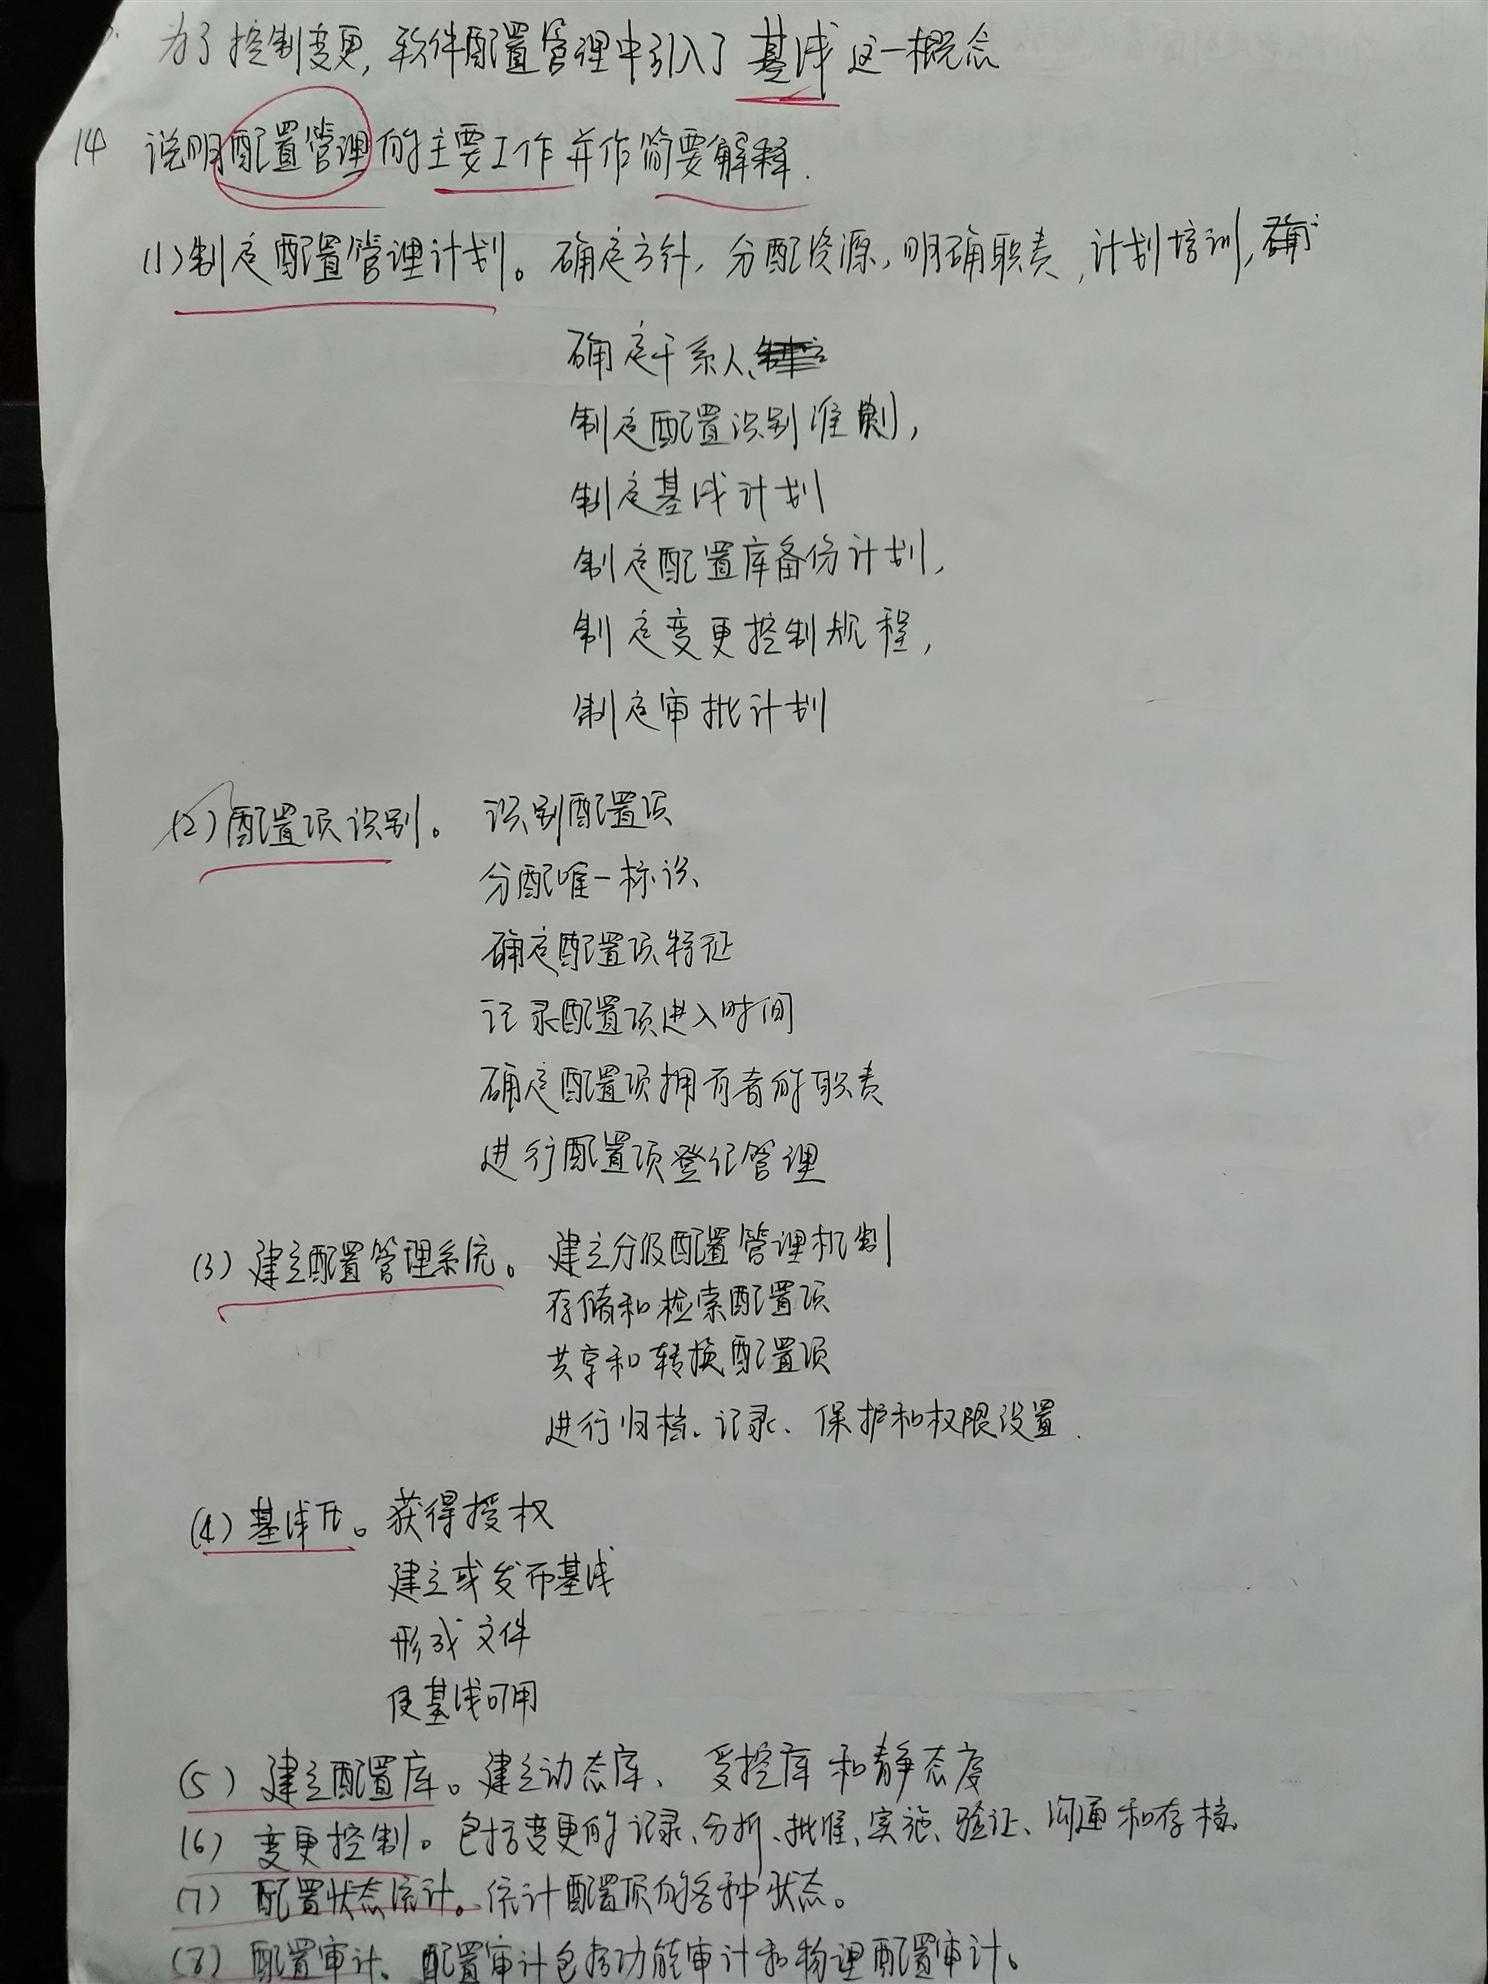 为了控制变更,软件配置管理中引入了基线这一概念
14 说明配置管理的主要工作并作简要解释.
(1)制定配置管理计划。确定方针,分配资源,明确职责,计划培训,确
确定干系人、
制定配置识别准则,
制定基线计划
制定配置库备份计划,
制定变更控制规程,
制定审批计划
(2)配置项识别。识别配置项
分配唯一标识、
确定配置项特征
记录配置项进入时间
确定配置项拥有者的职责
进行配置项登记管理
(3)建立配置管理系统。建立分级配置管理机制
存储和检索配置项
共享和转换配置项
进行归档、记录、保护和权限设置.
(4)基线化。获得授权
建立或发布基线
形成文件
使基线可用
(5)建立配置库。建立动态库、受控库和静态度
(6)变更控制。包括变更的记录、分析、批准、实施、验证、沟通和存档
(7)配置状态统计。统计配置项的各种状态。
(8)配置审计。配置审计包括功能审计和物理配置审计。